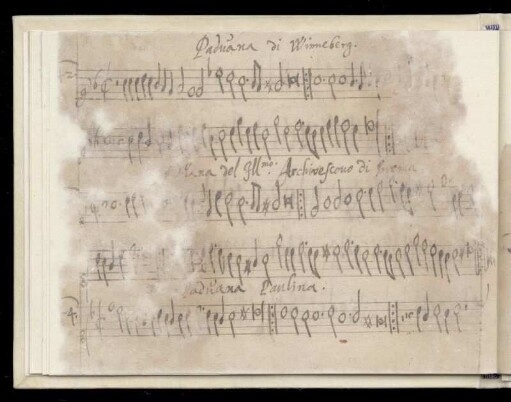 Paduana di Winneberg.
del Ill^mo. Archivescovo di
Paduana Paulina.
4.